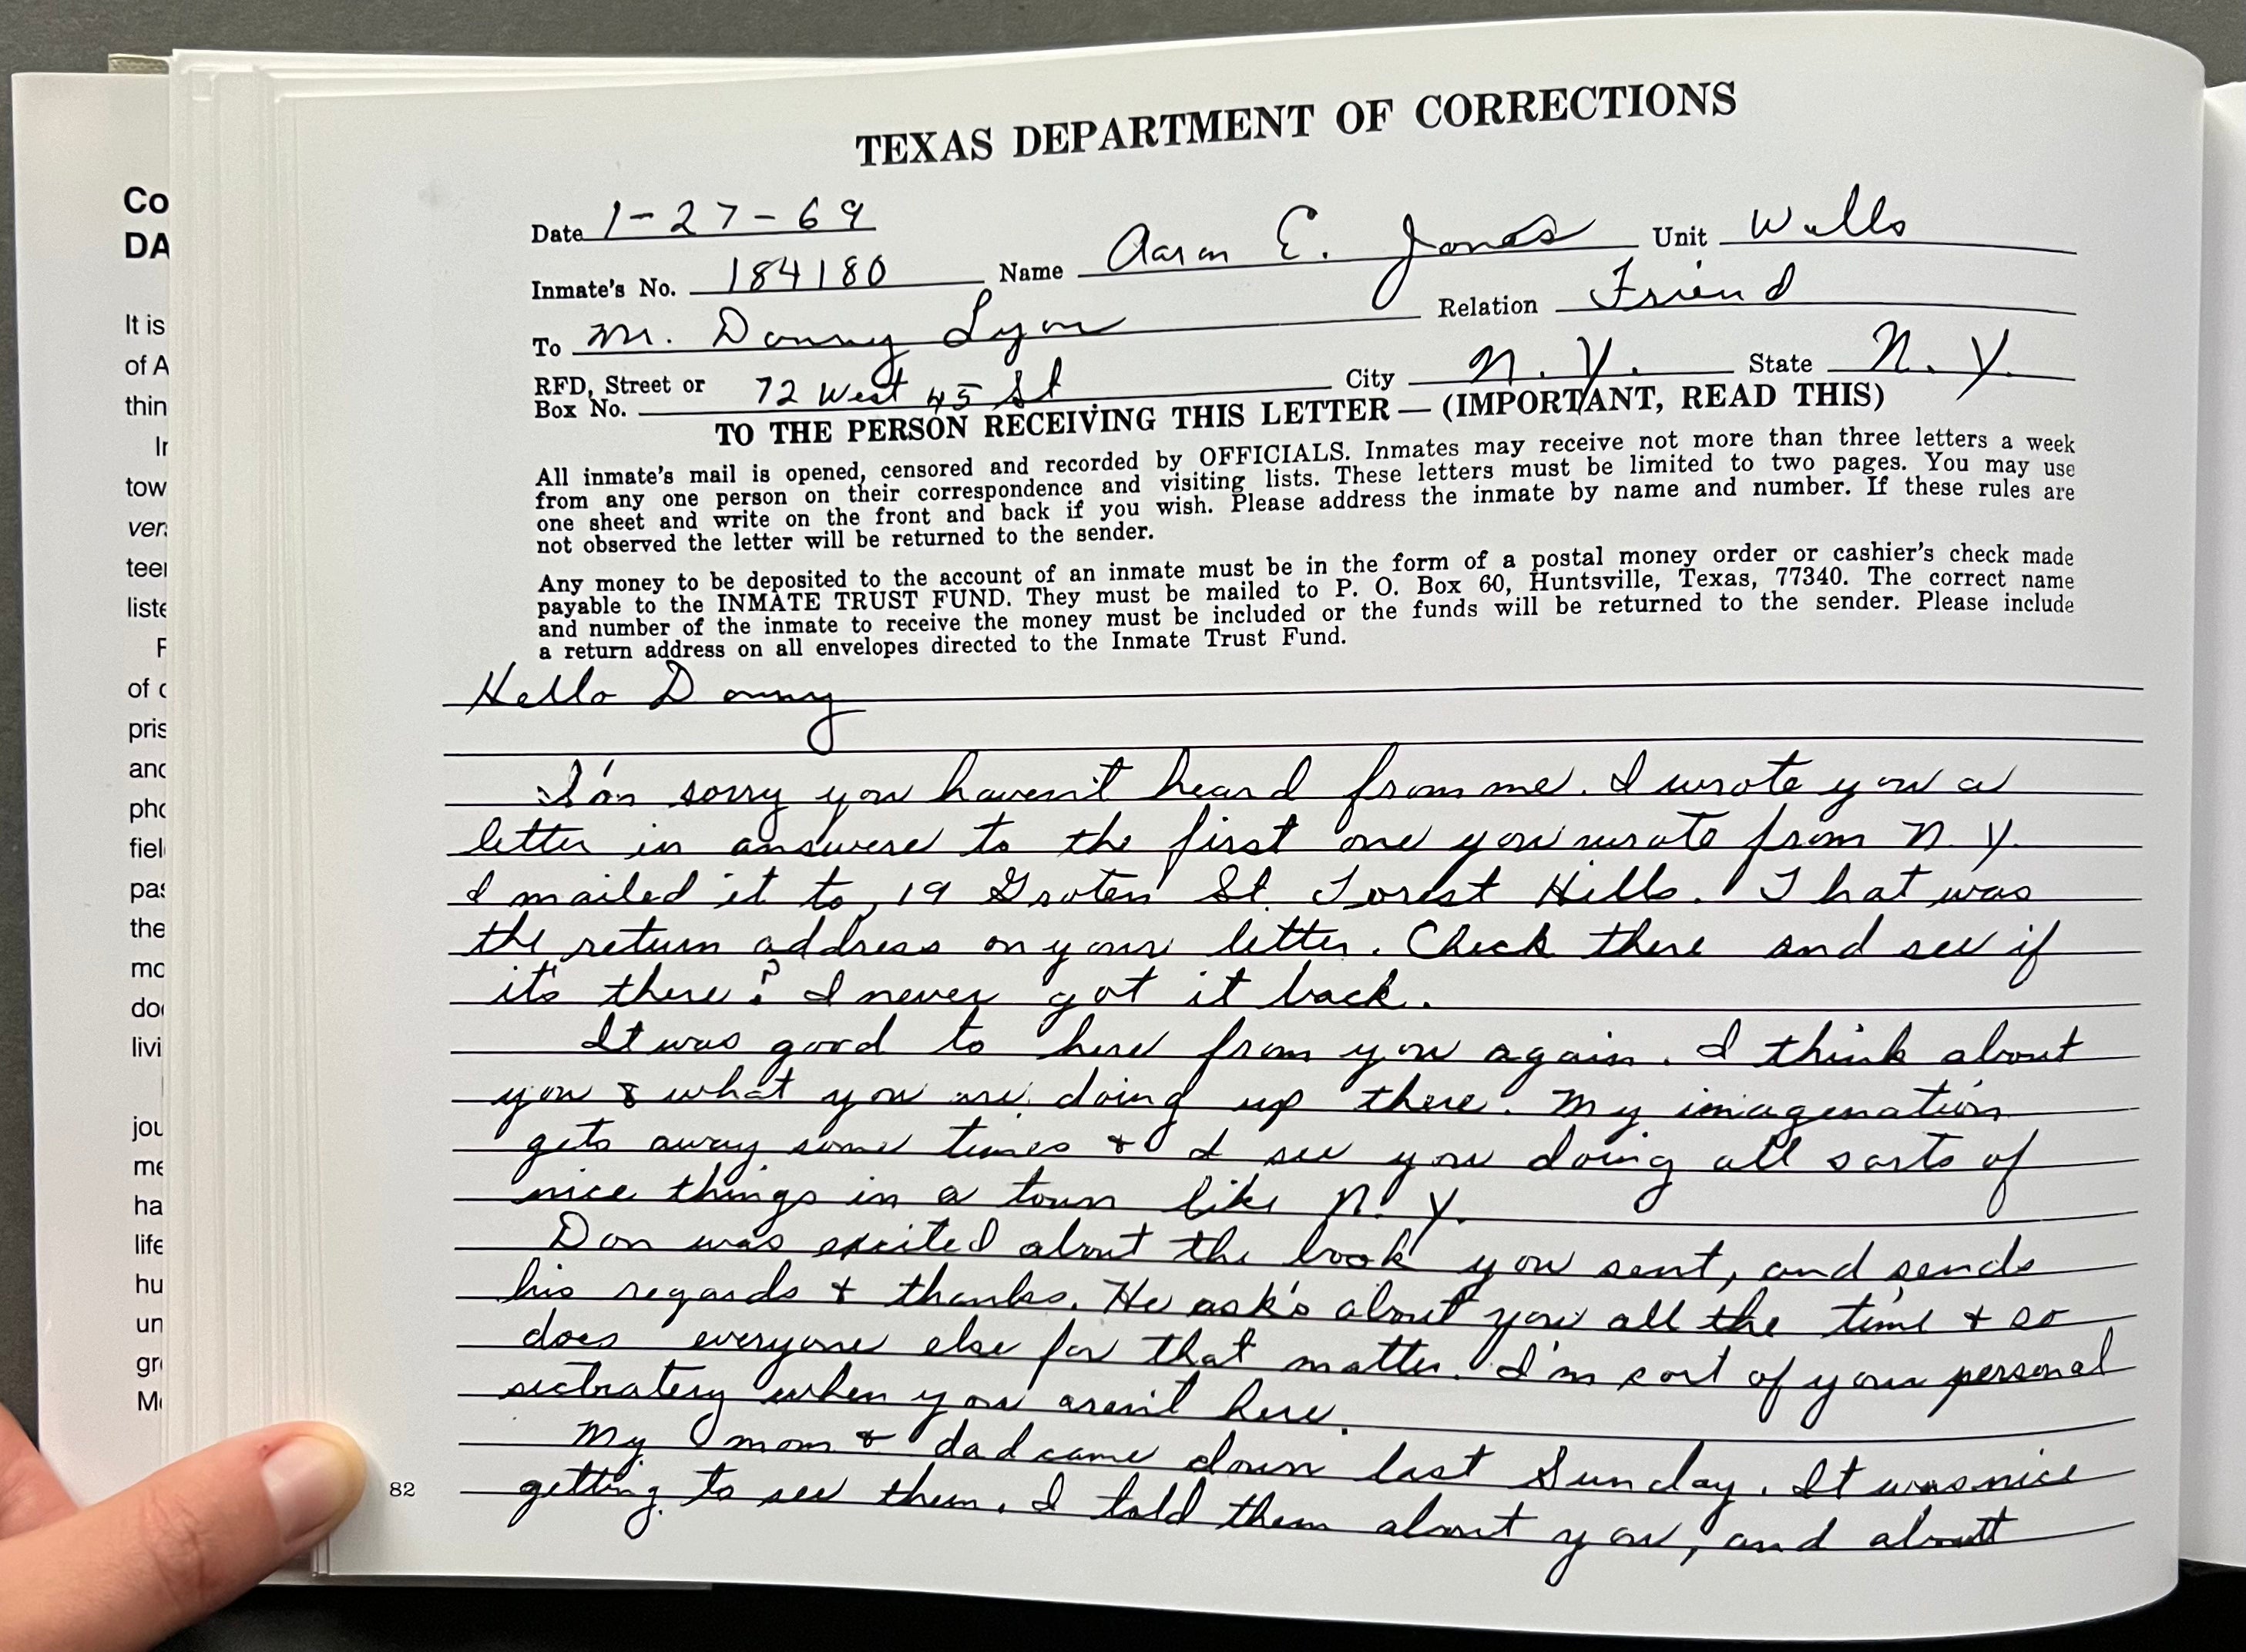 Co
DA
It is
of A
thin
In
tow
vers
teen
liste
F
of c
pris
and
pho
field
pas
the
mo
do
livi
jou
me
ha
life
hu
un
gr
M
TEXAS DEPARTMENT OF CORRECTIONS
Date 1-27-69
Inmate's No. 184180 Name Aaron E. Jones Unit Walls
To Mr. Danny Lyon Relation Friend
RFD, Street or Box No. 72 West 45 St City N.Y. State N.Y.
TO THE PERSON RECEIVING THIS LETTER — (IMPORTANT, READ THIS)
All inmate's mail is opened, censored and recorded by OFFICIALS. Inmates may receive not more than three letters a week
from any one person on their correspondence and visiting lists. These letters must be limited to two pages. You may use
one sheet and write on the front and back if you wish. Please address the inmate by name and number. If these rules are
not observed the letter will be returned to the sender.
Any money to be deposited to the account of an inmate must be in the form of a postal money order or cashier's check made
payable to the INMATE TRUST FUND. They must be mailed to P. O. Box 60, Huntsville, Texas, 77340. The correct name
and number of the inmate to receive the money must be included or the funds will be returned to the sender. Please include
a return address on all envelopes directed to the Inmate Trust Fund.
Hello Danny
I'm sorry you haven't heard from me. I wrote you a
letter in answere to the first one you wrote from N.Y.
I mailed it to, 19 Groten St. Forest Hills. That was
the return address on your letter. Check there and see if
it's there? I never got it back.
It was good to here from you again. I think about
you & what you are doing up there. My imagenation
gets away some times & I see you doing all sorts of
nice things in a town like N.Y.
Don was excited about the book you sent, and sends
his regards & thanks. He ask's about you all the time & so
does everyone else for that matter. I'm sort of your personal
sectratery when you aren't here.
My mom & dad came down last Sunday. It was nice
getting to see them. I told them about you, and about
82